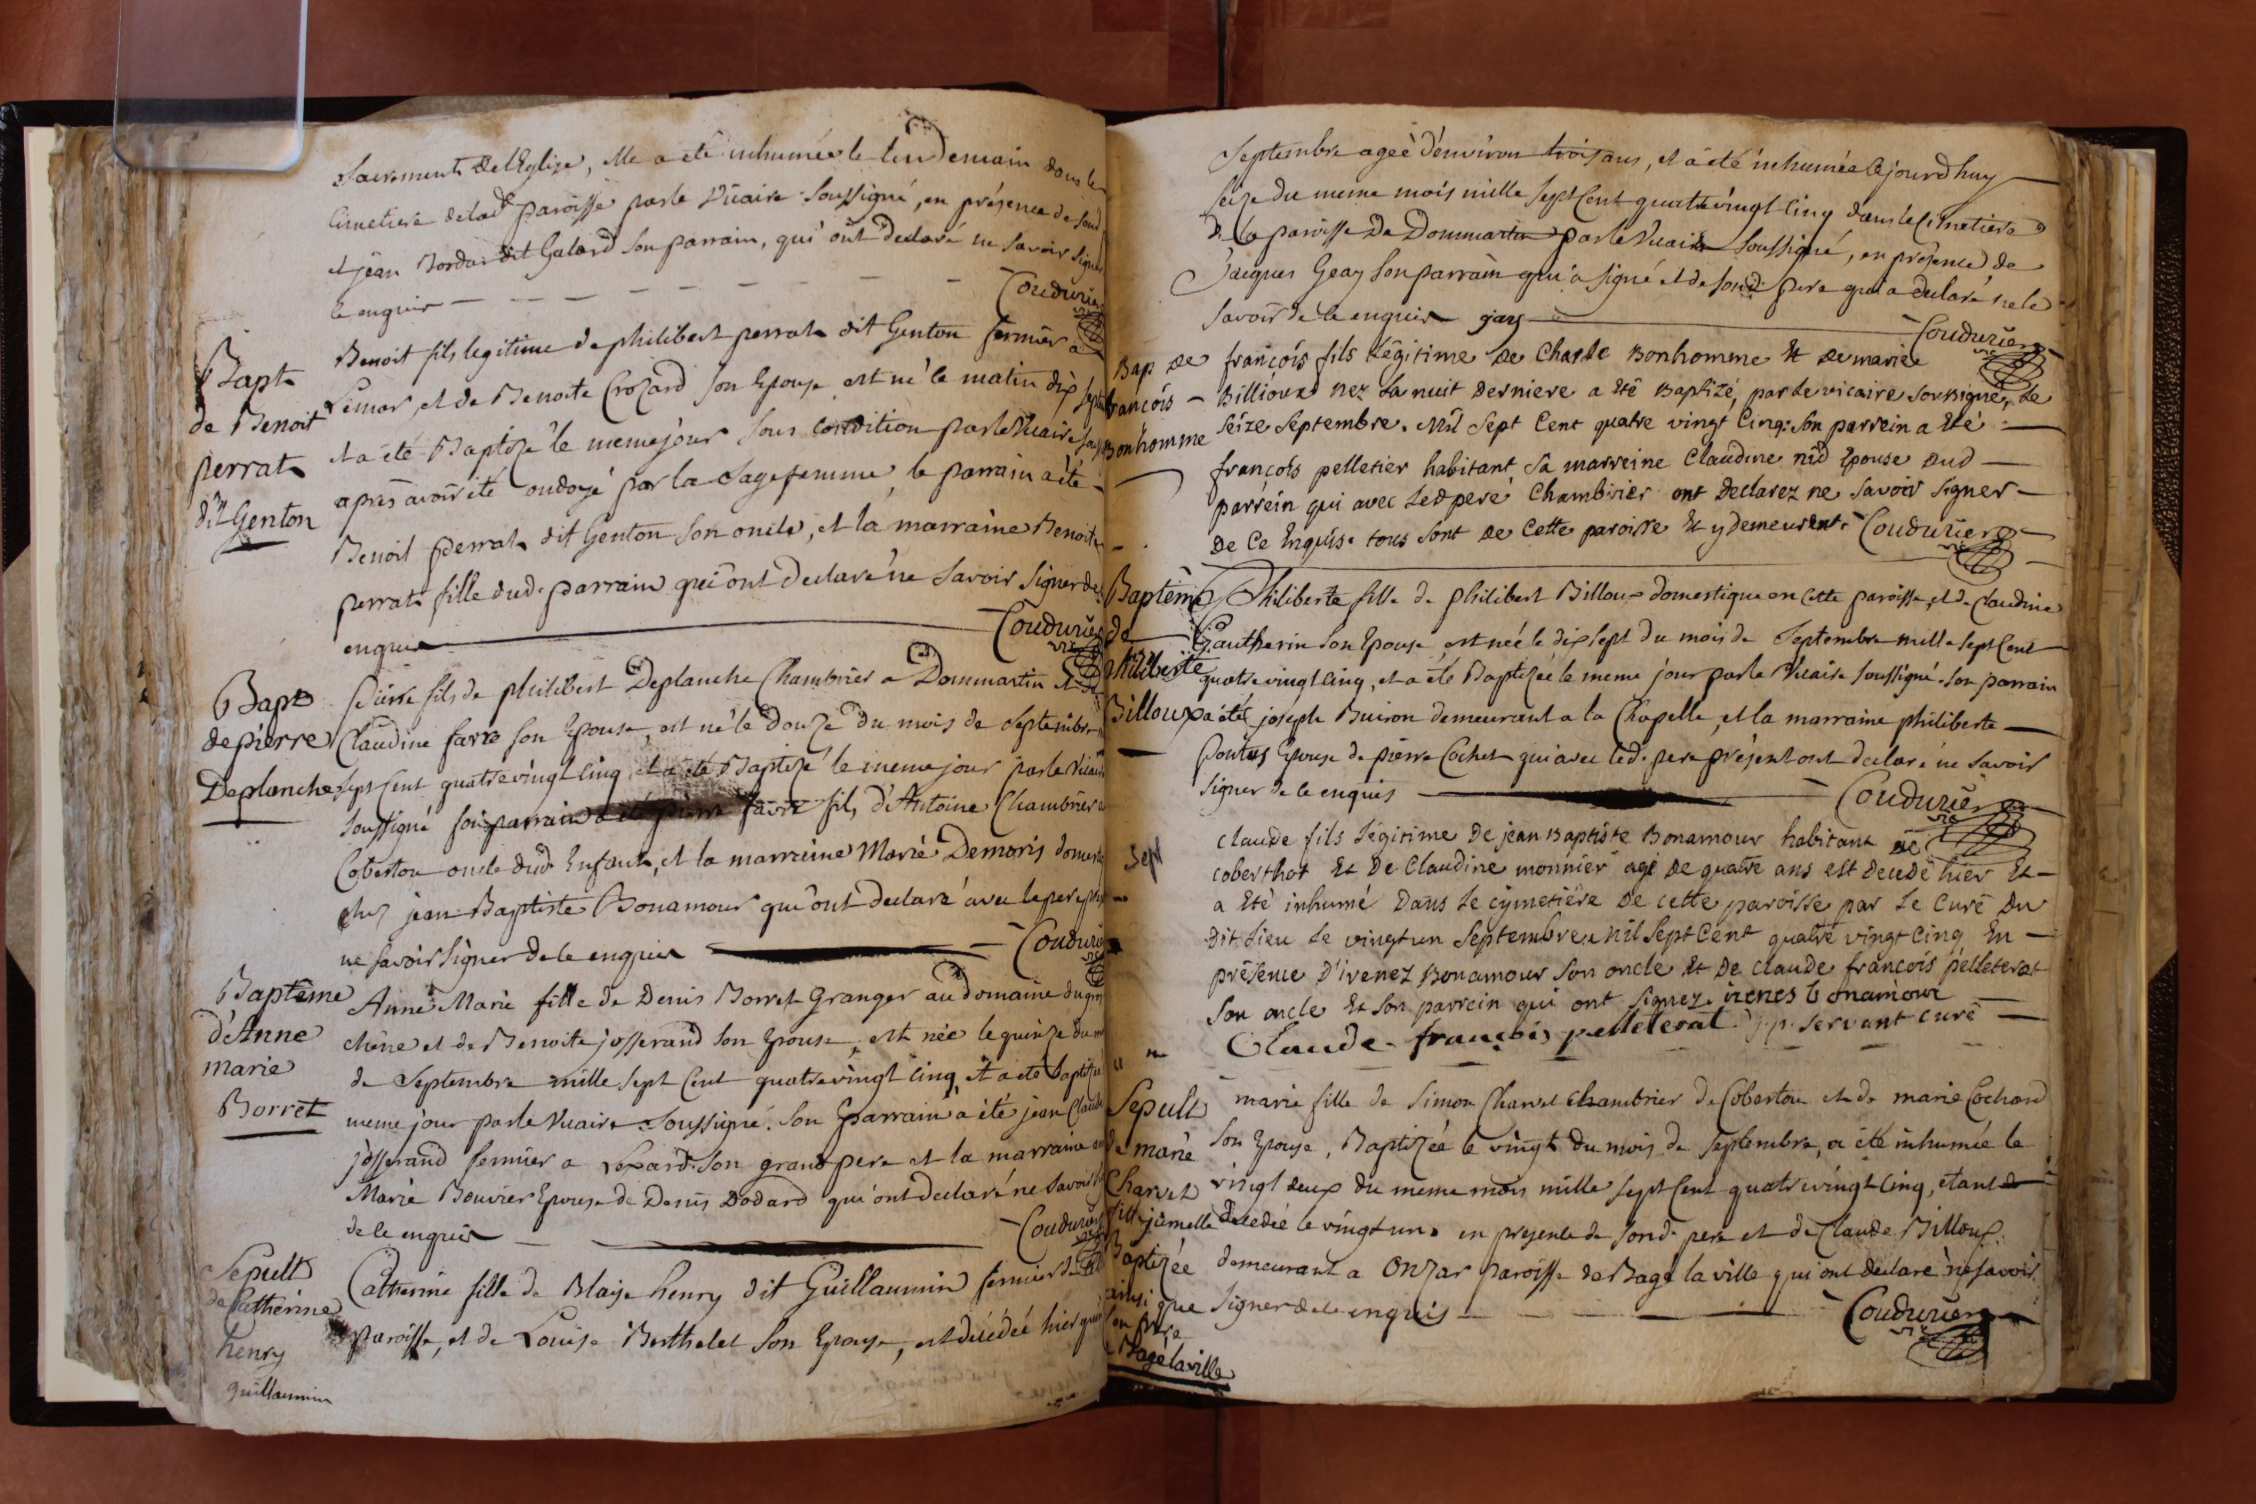 Sacrements de l'Eglise, elle a été inhumée le lendemain dans le
Cimetiere de lad paroisse par le Vicaire Soussigné, en présence de sond
et jean Bordat dit Galard son parrain, qui ont declaré ne Savoir signer
le enquis
Coudurier
vic
Bapt
de Benoit
perrat
dit Genton
Benoit fils legitime de philibert perrat dit Genton fermier a
Lemar, et de Benoite Crozard son Epouse est né le matin dix sept
et a été Baptisé le meme jour sous condition par le Vicaire sous
apres avoir été ondoyé par la Sage femme, le parrain a été
Benoit perrat dit Genton son oncle, et la marraine Benoite
perrat fille dud. parrain qui ont declaré ne savoir signer de
enquis
Coudurier
vic
Bapt
de pierre
Deplanche
Pierre fils de philibert Deplanche Chambrier a Dommartin et de
Claudine favre son Epouse, est né le douze du mois de Septembre
sept Cent quatre vingt cinq et a été Baptizé le meme jour par le Vicaire
soussigné son parrain a été pierre favre fils d'Antoine Chambrier a
Coberton oncle dud. Enfant, et la marreine Marie Demoris domest
chez jean Baptiste Bonamour qui ont declaré avec le pere
ne savoir signer de le enquis
Coudurier
vic
Baptême
d'Anne
marie
Borret
Anne Marie fille de Denis Borret Granger au domaine du
chêne et de Benoite josserand son Epouse, est née le quinze du
de Septembre mille sept Cent quatre vingt cinq, et a été baptisée
meme jour par le Vicaire Soussigné. Son parrain a été jean Claude
josserand fermier a Lezard son grand pere et la marraine
Marie Bouvier Epouse de Denis Dodard qui ont declaré ne savoir
de le enquis
Coudurier
vic
Sepult
de Catherine
henry
guillaumin
Catherine fille de Blaise henry dit Guillaumin fermier de
paroisse, et de Louise Berthelet son Epouse, est décédée hier
Septembre ageé d'environ trois ans, et a été inhumée cejourd'huy
seize du meme mois mille sept Cent quatre vingt cinq dans le Cimetiere
de la paroisse De Dommartin par le Vicaire Soussigné, en présence de
Jacques Geay son parrain qui a signé et de sond. pere qui a declaré ne le
savoir de le enquis geay
Coudurier
vic
Bap de
francois
Bonhomme
francois fils Légitime De Charle Bonhomme Et De marie
Billioux nez La nuit Derniere a Eté Baptizé, par Le vicaire soussigné, Le
Seize Septembre. Mil Sept Cent quatre vingt Cinq: son parrein a Eté
francois pelletier habitant sa marreine Claudine nid Epouse dud
parrein qui avec Led pere Chambirier ont Declarez ne savoir signer
De Ce Enquis. tous sont de Cette paroisse Et y demeurent.
Coudurier
vic
Baptême
de
philiberte
Billoux
Philiberte fille de philibert Billoux domestique en cette paroisse, et de Claudine
Gautherin son Epouse est née le dix sept du mois de Septembre mille sept Cent
quatre vingt cinq, et a été Baptizée le meme jour par le Vicaire soussigné. son parrain
a été joseph Buiron demeurant a la Chapelle, et la marraine philiberte
Pontus Epouse de pierre Cochet qui avec led. pere présent ont declaré ne savoir
signer de le enquis
Coudurier
vic
Sept
claude fils Légitime De jean Baptiste Bonamour habitant de
coberthot Et De Claudine monnier agé de quatre ans est decedé hier Et
a Eté inhumé Dans Le cymetiére De cette paroisse par Le Curé Du
Dit Lieu Le vingt un Septembre Mil Sept Cent quatre vingt Cinq En
présence D'irenez Bonamour son oncle Et De claude francois pelleterat
son oncle Et son parrein qui ont signez. irenes bonamour
Claude francois pelleterat j. p. servant curé
Sepult
de marie
Charvet
fille jumelle
Baptizée
ainsi que
son frere
a Bagé la ville
marie fille de Simon Charvet chambrier de Coberton et de marie Cochard
son Epouse, Baptizée le vingt du mois de Septembre, a été inhumée le
vingt deux du meme mois mille sept Cent quatre vingt cinq, étant
decedée le vingt un. en presence de sond. pere et de Claude Billoux
demeurant a Onzar paroisse de Bagé la ville qui ont declaré ne savoir
signer de le enquis
Coudurier
vic